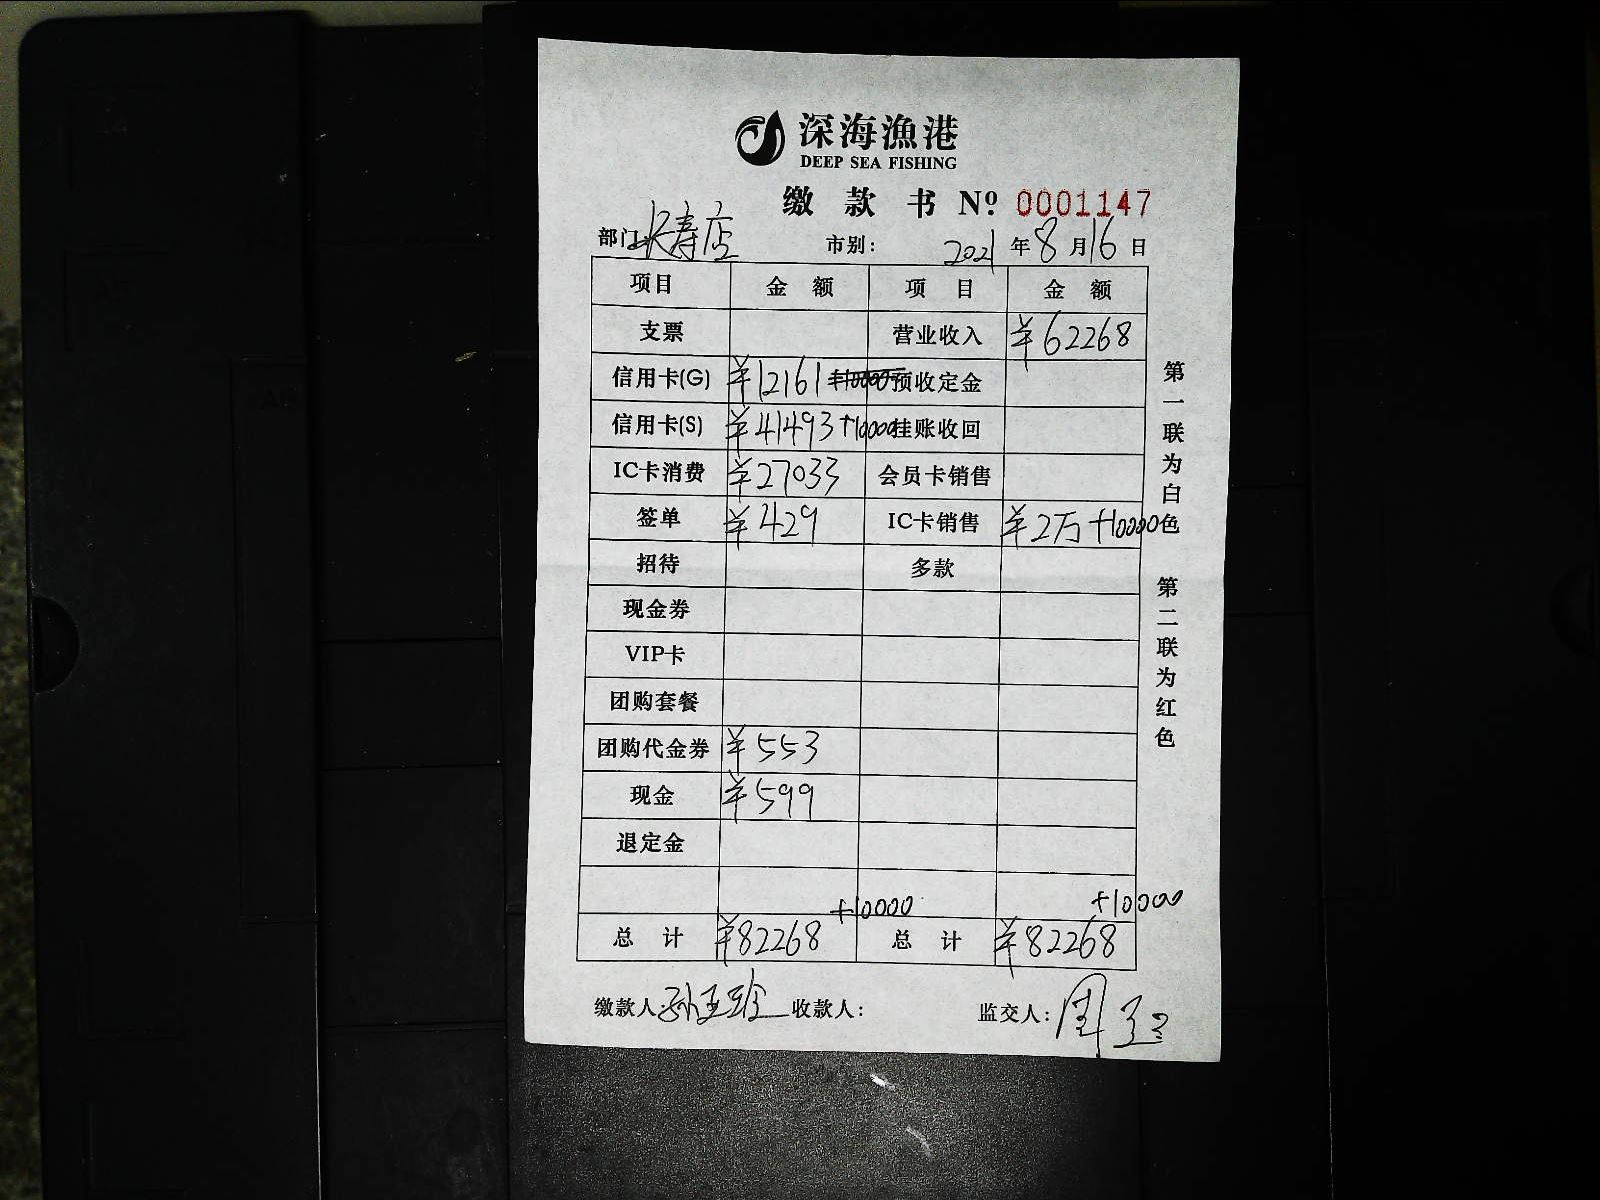 深海漁港
DEEP SEA FISHING
缴 款 书 Nº. 0001147
部门: 长寿店 市别: 2021 年 8 月 16 日
项目 金 额 项 目 金 额
支票 营业收入 ¥62268
信用卡(G) ¥12161 +10000 预收定金
信用卡(S) ¥41493+10000 挂账收回
IC卡消费 ¥27033 会员卡销售
签单 ¥429 IC卡销售 ¥2万+10000
招待 多款
现金券
VIP卡
团购套餐
团购代金券 ¥553
现金 ¥599
退定金
+10000 +10000
总 计 ¥82268 总 计 ¥82268
缴款人: 收款人: 监交人:
第一联为白色
第二联为红色